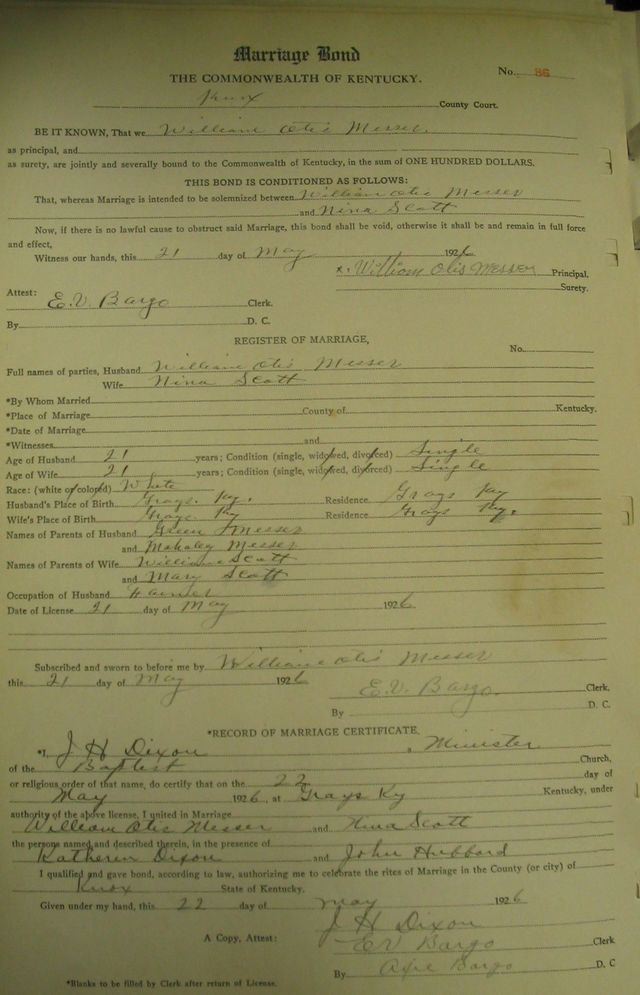 Marriage Bond
THE COMMONWEALTH OF KENTUCKY.
No. 86
Knox County Court.
BE IT KNOWN, That we William Otis Messer.
as principal, and
as surety, are jointly and severally bound to the Commonwealth of Kentucky, in the sum of ONE HUNDRED DOLLARS.
THIS BOND IS CONDITIONED AS FOLLOWS:
That, whereas Marriage is intended to be solemnized between William Otis Messer
and Nina Scott
Now, if there is no lawful cause to obstruct said Marriage, this bond shall be void, otherwise it shall be and remain in full force
and effect,
Witness our hands, this 21 day of May 1926
x. William Otis Messer Principal.
Surety.
Attest: E.V. Bargo Clerk.
By D. C.
REGISTER OF MARRIAGE,
No.
Full names of parties, Husband William Otis Messer
Wife Nina Scott
*By Whom Married
*Place of Marriage County of Kentucky.
*Date of Marriage
*Witnesses and
Age of Husband 21 years; Condition (single, widowed, divorced) Single
Age of Wife 21 years; Condition (single, widowed, divorced) Single
Race: (white or colored) White
Husband's Place of Birth Grays. Ky. Residence Grays Ky
Wife's Place of Birth Grays Ky Residence Grays Ky.
Names of Parents of Husband Green Messer
and Mahaley Messer
Names of Parents of Wife William Scott
and Mary Scott
Occupation of Husband Farmer
Date of License 21 day of May 1926
Subscribed and sworn to before me by William Otis Messer
this 21 day of May 1926
E.V. Bargo. Clerk.
By D. C.
*RECORD OF MARRIAGE CERTIFICATE.
*I, J H Dixon a Minister
of the Baptist Church,
or religious order of that name, do certify that on the 22 day of
May 1926, at Grays Ky Kentucky, under
authority of the above license, I united in Marriage
William Otis Messer and Nina Scott
the persons named and described therein, in the presence of
Katheren Dixon and John Hubbard
I qualified and gave bond, according to law, authorizing me to celebrate the rites of Marriage in the County (or city) of
Knox State of Kentucky.
Given under my hand, this 22 day of may 1926
J H Dixon
A Copy, Attest: EV Bargo Clerk
By Bargo D. C
*Blanks to be filled by Clerk after return of License.